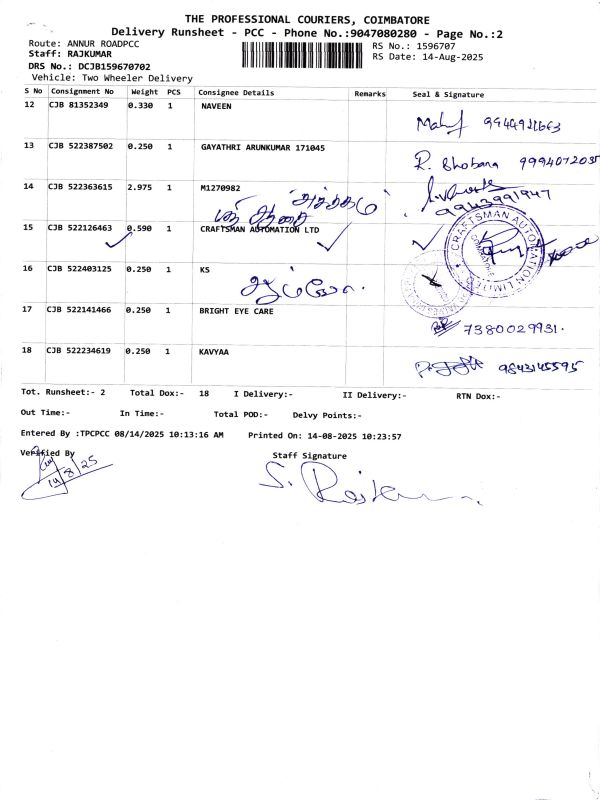 THE PROFESSIONAL COURIERS, COIMBATORE
Delivery Runsheet - PCC - Phone No.:9047080280 - Page No.:2
Route: ANNUR ROADPCC
RS No.: 1596707
Staff: RAJKUMAR
RS Date: 14-Aug-2025
DRS No.: DCJB159670702
Vehicle: Two Wheeler Delivery
S No Consignment No Weight PCS Consignee Details Remarks Seal & Signature
12 CJB 81352349 0.330 1 NAVEEN
13 CJB 522387502 0.250 1 GAYATHRI ARUNKUMAR 171045
R. Bhobana 9994072035
14 CJB 522363615 2.975 1 M1270982
9943991947
15 CJB 522126463 0.590 1 CRAFTSMAN AUTOMATION LTD
CRAFTSMAN AUTOMATION LIMITED
16 CJB 522403125 0.250 1 KS
17 CJB 522141466 0.250 1 BRIGHT EYE CARE
7380029931.
18 CJB 522234619 0.250 1 KAVYAA
9843145595
Tot. Runsheet:- 2 Total Dox:- 18 I Delivery:- II Delivery:- RTN Dox:-
Out Time:- In Time:- Total POD:- Delvy Points:-
Entered By :TPCPCC 08/14/2025 10:13:16 AM Printed On: 14-08-2025 10:23:57
Verified By Staff Signature
14/8/25